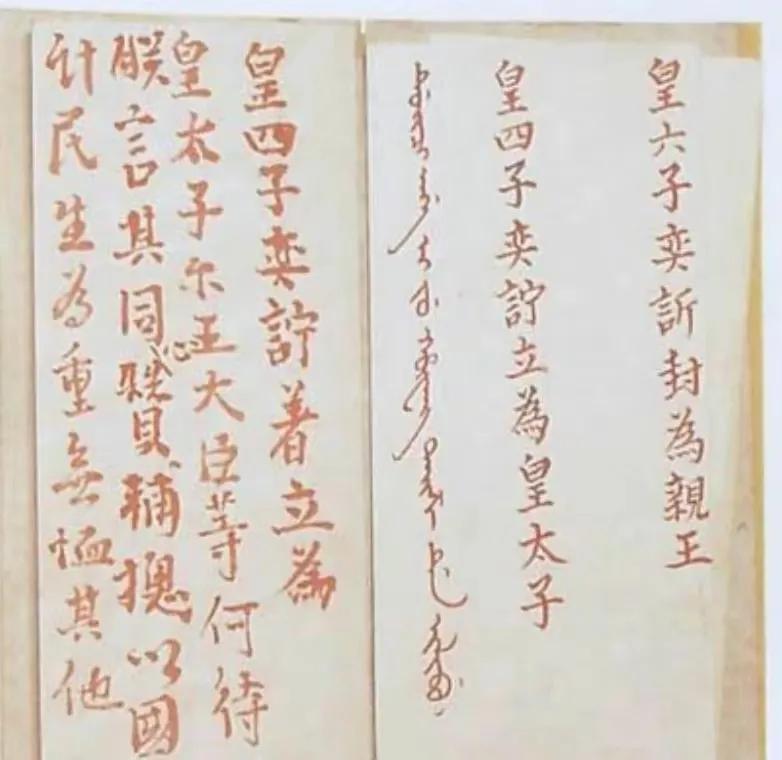 皇六子奕訢封為親王
皇四子奕詝立為皇太子
皇四子奕詝著立為
皇太子尔王大臣等何待
朕言其同心賛輔揔以國
計民生為重無恤其他